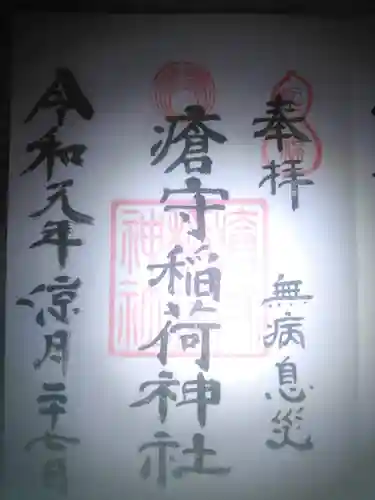 奉拝
無病息災
瘡守稲荷神社
令和元年涼月二十七日